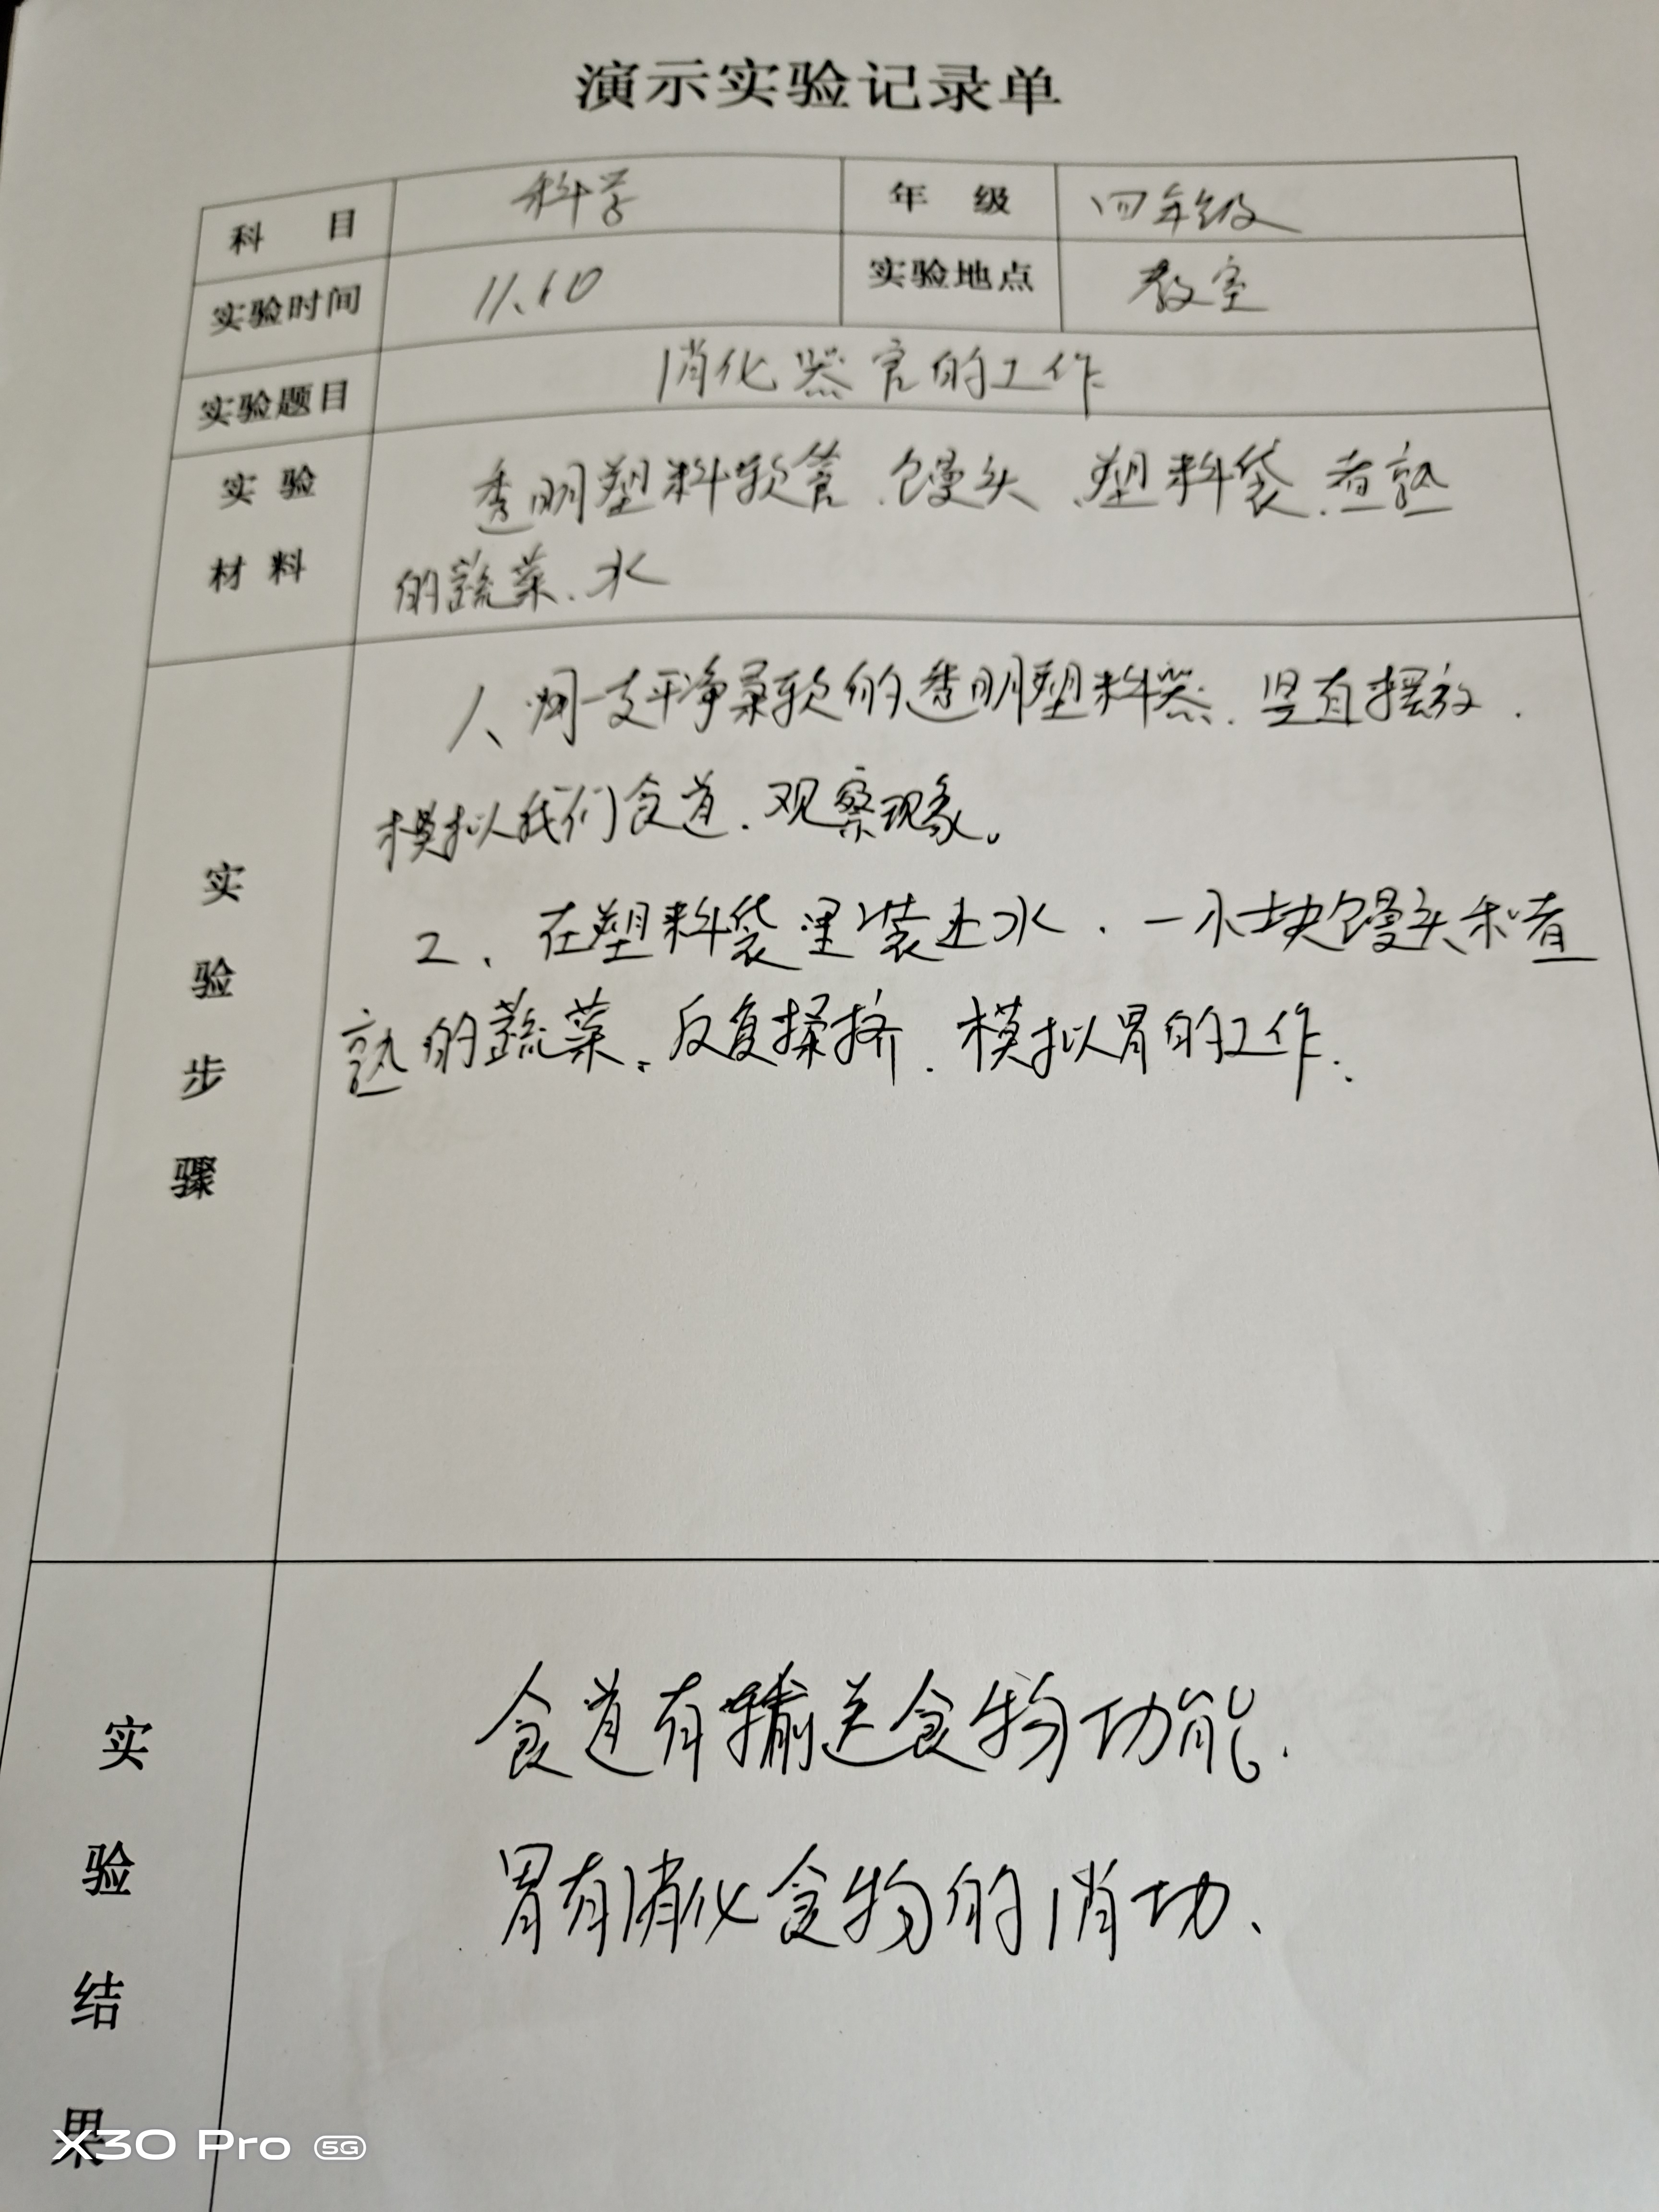 演示实验记录单
科目 科学 年级 四年级
实验时间 11.10 实验地点 教室
实验题目 消化器官的工作
实验材料 透明塑料软管、馒头、塑料袋、煮熟
的蔬菜、水
1、用一支干净柔软的透明塑料器、竖直摆放、
模拟我们食道、观察现象。
2、在塑料袋里装上水、一小块馒头和煮
熟的蔬菜、反复揉挤、模拟胃的工作、
实验步骤
食道有输送食物功能、
胃有消化食物的消功、
实验结果
X30 Pro 5G